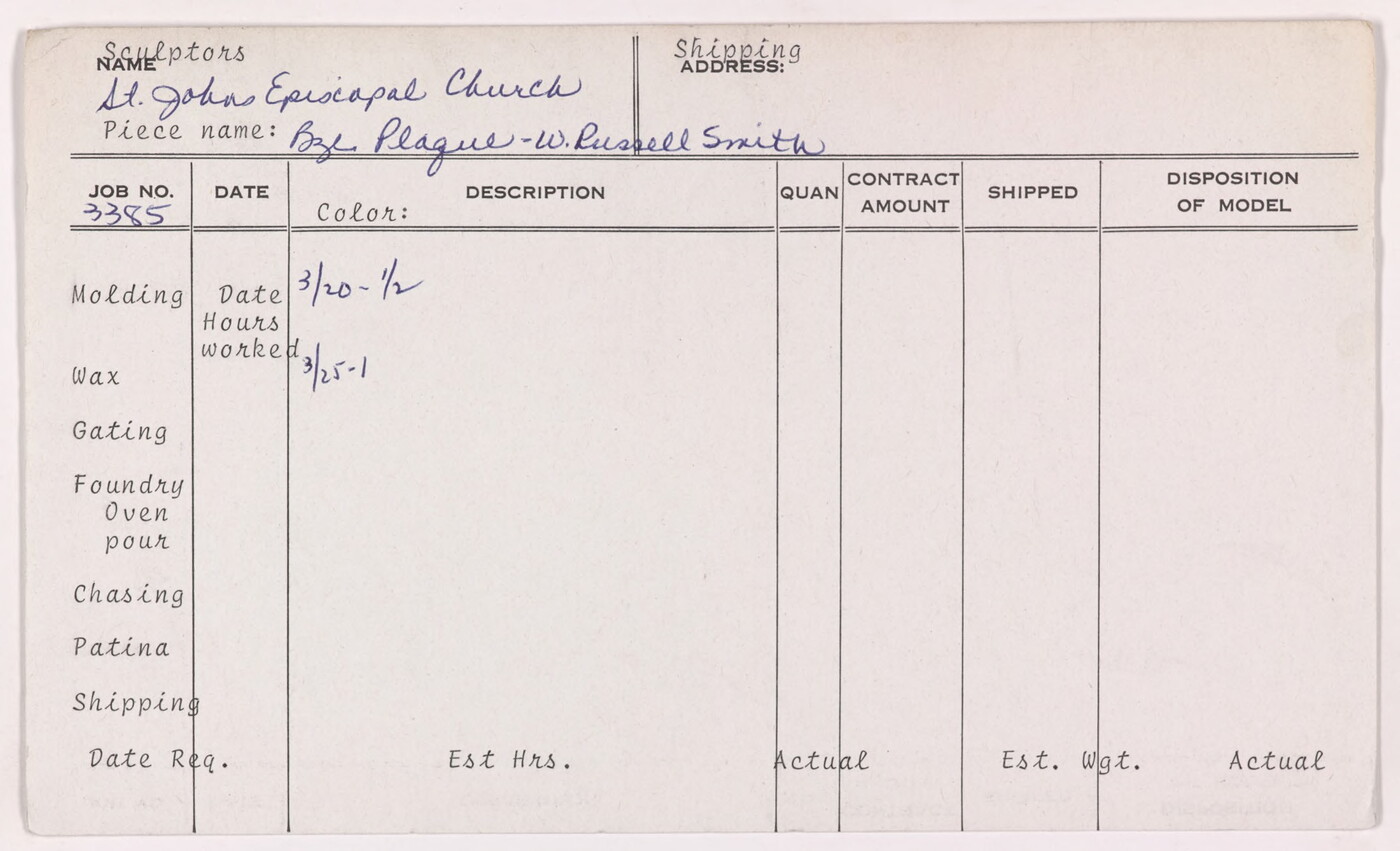 Sculptors Shipping
NAME ADDRESS:
St. Johns Episcopal Church
Piece name: Bze Plaque - W. Russell Smith
JOB NO. DATE DESCRIPTION QUAN CONTRACT AMOUNT SHIPPED DISPOSITION OF MODEL
3385 Color:
Molding Date 3/20 - 1/2
Hours
worked
Wax 3/25 - 1
Gating
Foundry
Oven
pour
Chasing
Patina
Shipping
Date Req. Est Hrs. Actual Est. Wgt. Actual